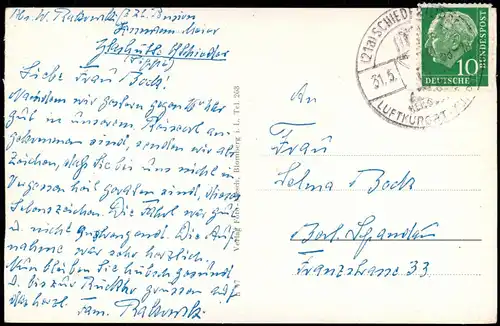 Abs. W. Rakowski z. Zt. Pension
Hermann Meier
Glashütte b/Schieder
(Lippe)
Liebe Frau Bock!
Nachdem wir gestern gegen
gut in unserem Reiseort an-
gekommen sind, senden wir als
Zeichen, daß Sie bei uns nicht in
Vergessenheit geraten sind, dieses
Lebenszeichen. Die Fahrt war gut
u. nicht anstrengend. Die Auf-
nahme war sehr herzlich.
Nun bleiben Sie hübsch gesund
u. bis zur Rückkehr grüssen auf
das herzl. Fam. Rakowski
Blomberg i. L. Tel. 206
(21a) SCHIEDER
31.5.
LUFTKURORT
DEUTSCHE BUNDESPOST
10
An
Frau
Helma Bock
Berl. Spandau
Franzstrasse 33